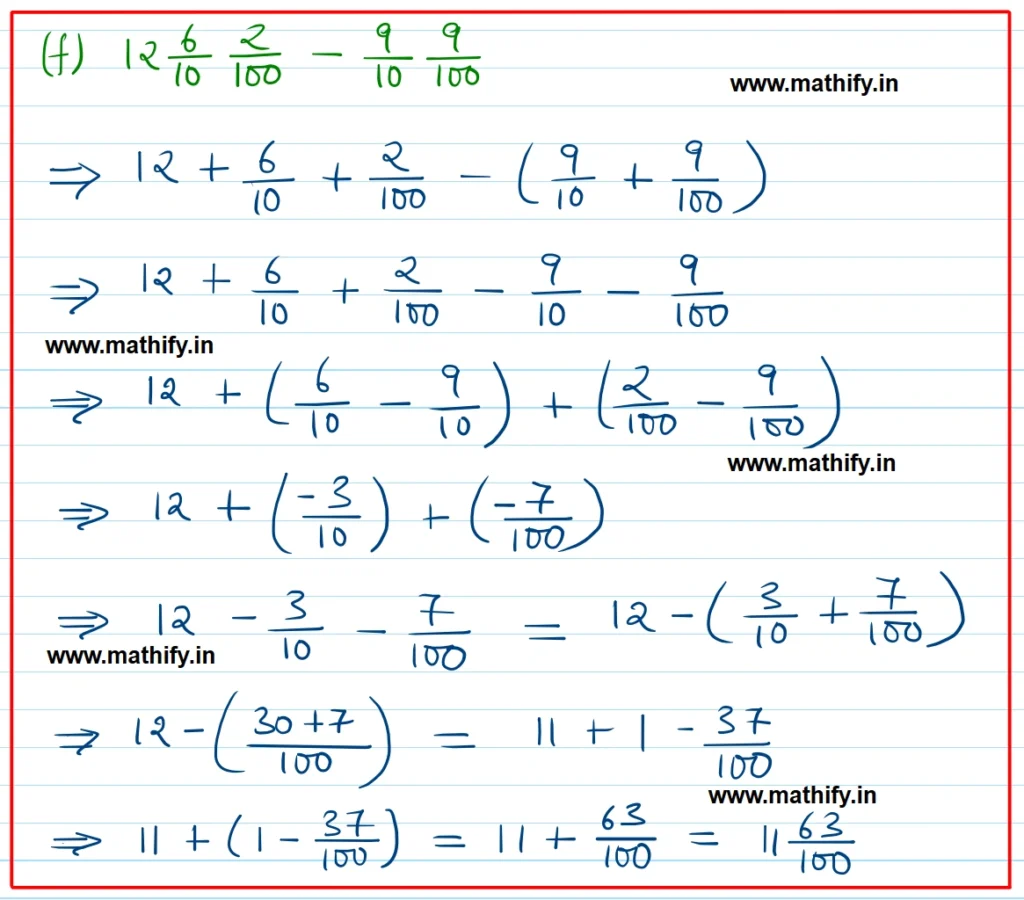 (f) 12 6/10 2/100 - 9/10 9/100
www.mathify.in
⇒ 12 + 6/10 + 2/100 - (9/10 + 9/100)
⇒ 12 + 6/10 + 2/100 - 9/10 - 9/100
www.mathify.in
⇒ 12 + (6/10 - 9/10) + (2/100 - 9/100)
www.mathify.in
⇒ 12 + (-3/10) + (-7/100)
⇒ 12 - 3/10 - 7/100 = 12 - (3/10 + 7/100)
www.mathify.in
⇒ 12 - (30+7/100) = 11 + 1 - 37/100
www.mathify.in
⇒ 11 + (1 - 37/100) = 11 + 63/100 = 11 63/100